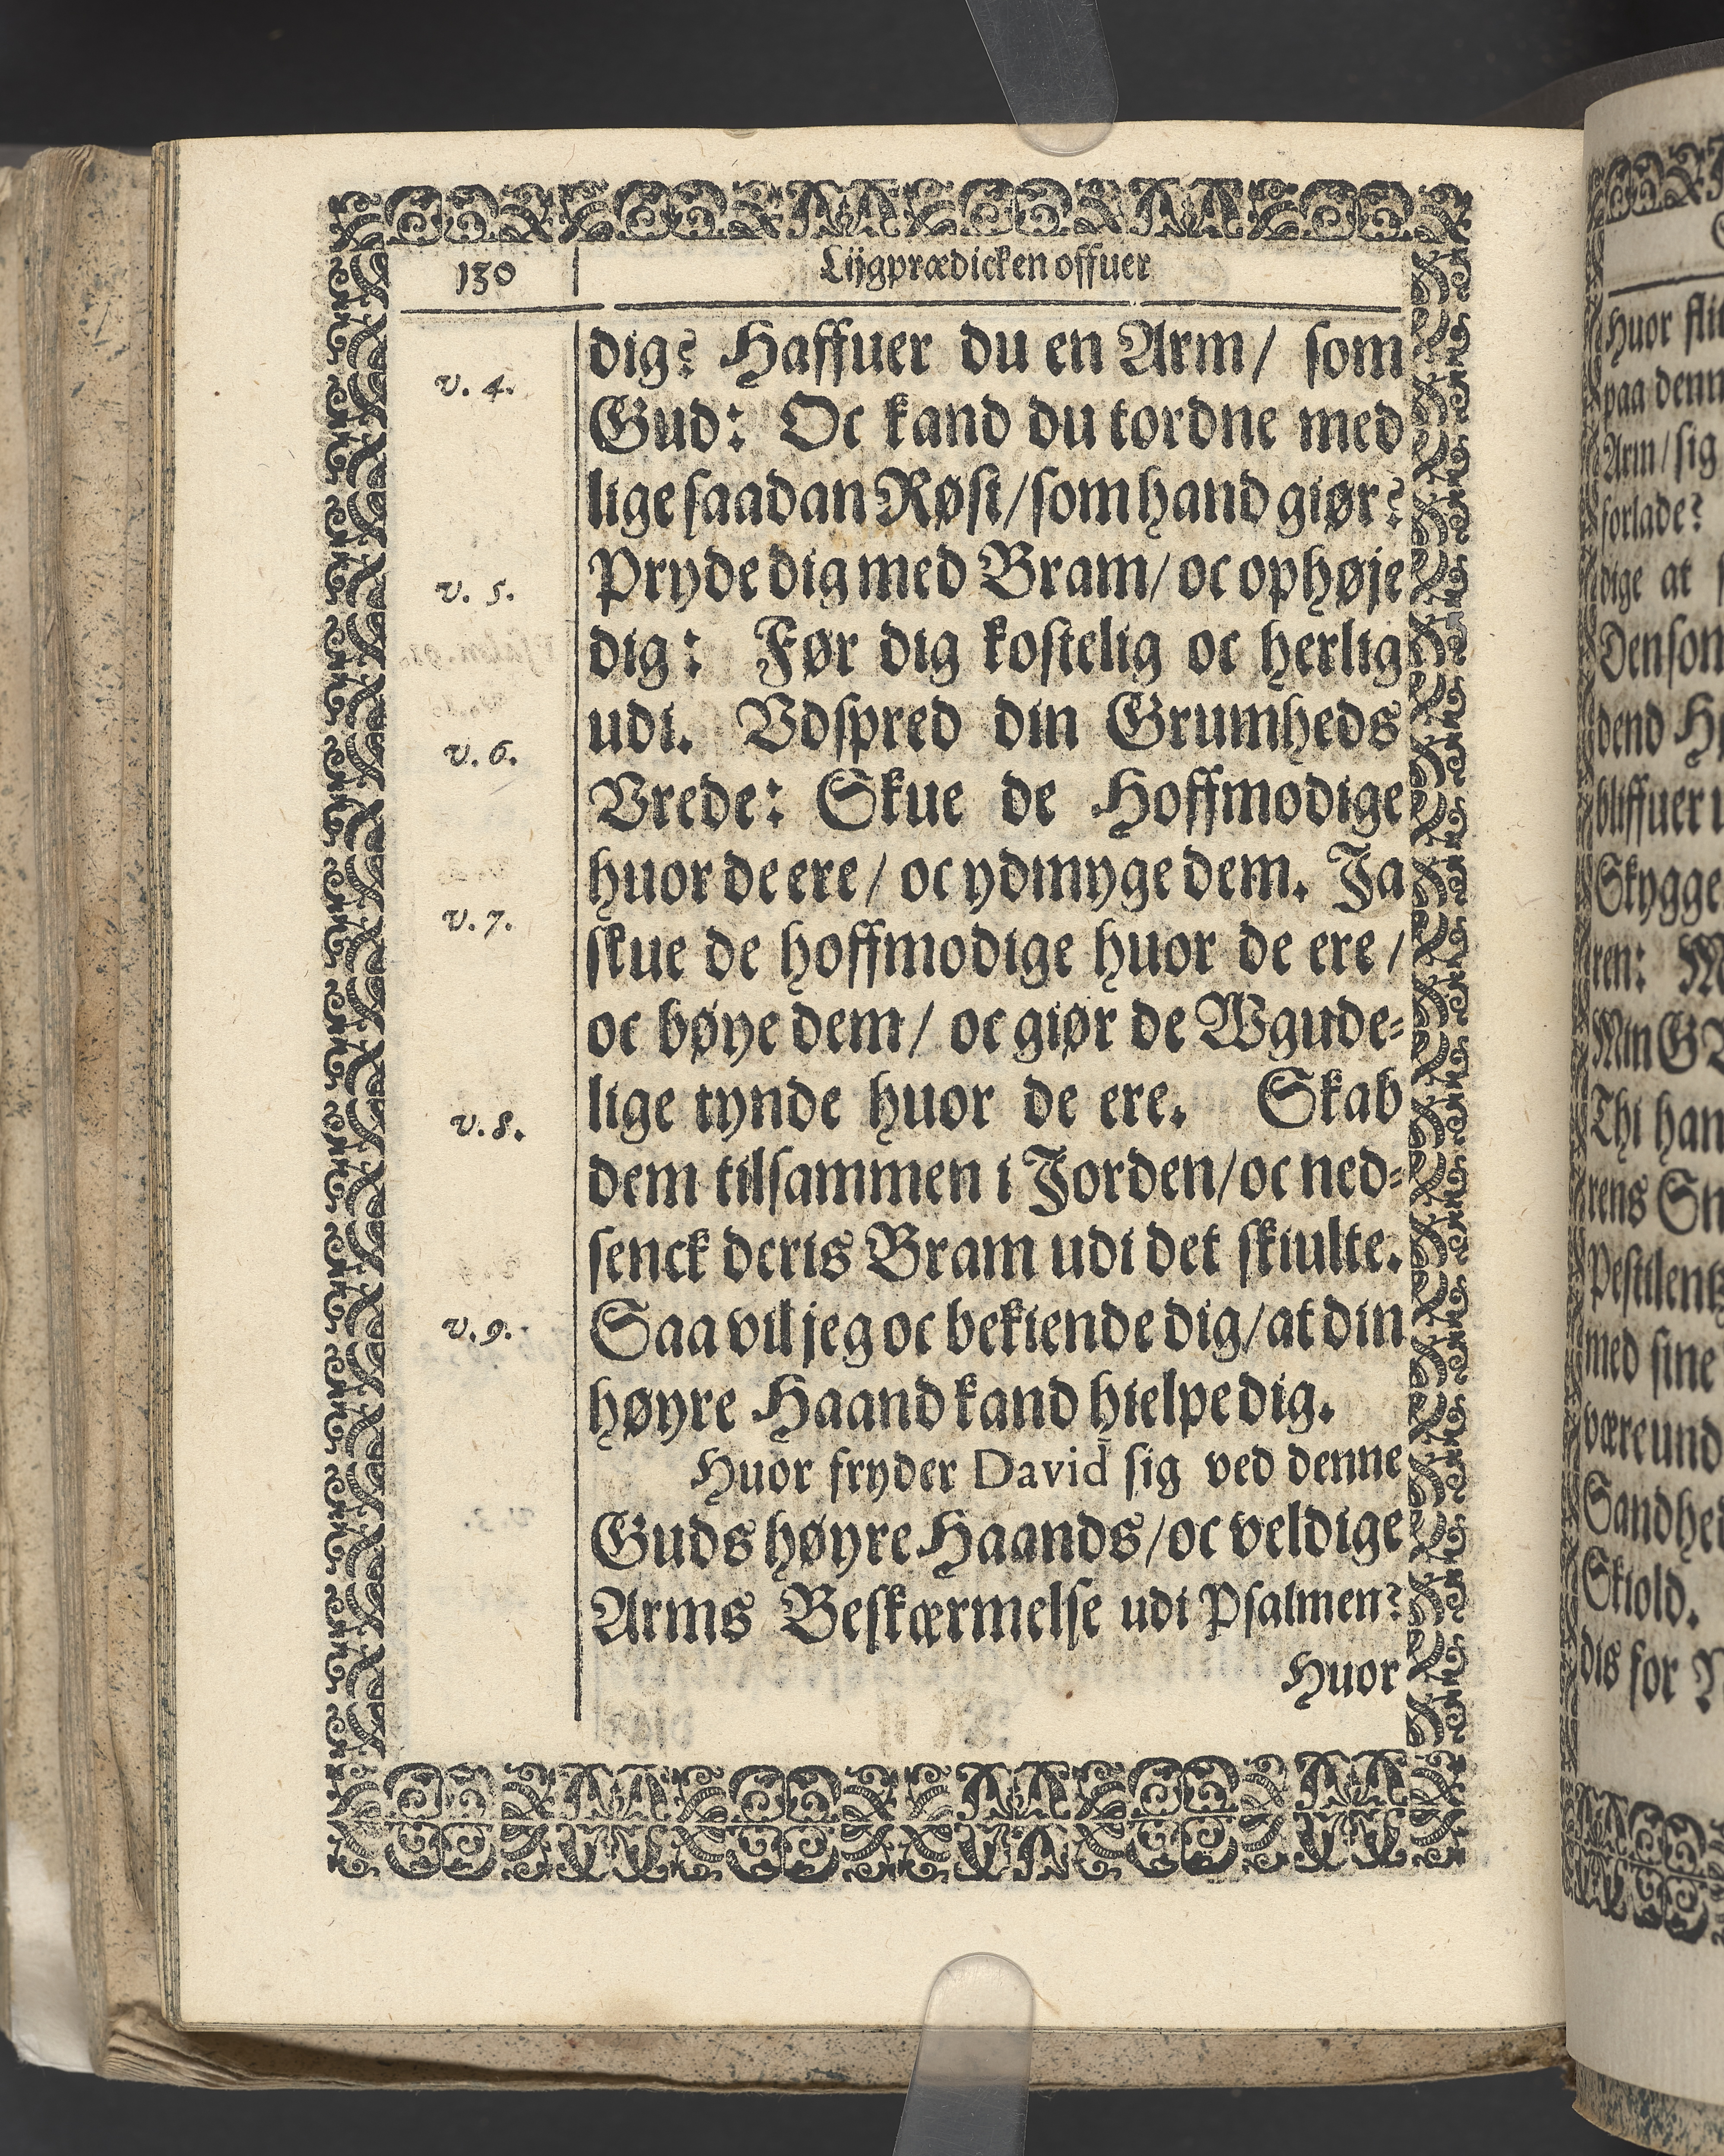 130
Lijgprædicken offuer
dig? Haffuer du en Arm/ som
v. 4.
Gud: Oc kand du tordne med
lige saadan Røst/ som hand giør?
Pryde dig med Bram/ oc ophøje
v. 5.
dig: Før dig kostelig oc herlig
udi. Vdspred din Grumheds
v. 6.
Vrede: Skue de Hoffmodige
huor de ere/ oc ydmyge dem. Ja
v. 7.
skue de hoffmodige huor de ere/
oc bøye dem/ oc giør de Wgude-
lige tynde huor de ere. Skab
v. 8.
dem tilsammen i Jorden/ oc ned-
senck deris Bram udi det skiulte.
Saa vil jeg oc bekiende dig/ at din
v. 9.
høyre Haand kand hielpe dig.
Huor fryder David sig ved denne
Guds høyre Haands/ oc veldige
Arms Beskærmelse udi Psalmen?
Huor
huor
paa
Arm/ sig
forlade?
dige at
Den som
dend
bliffuer
Skygge
ren:
Min
Thi han
rens
med sine
være und
Skiold.
dis for